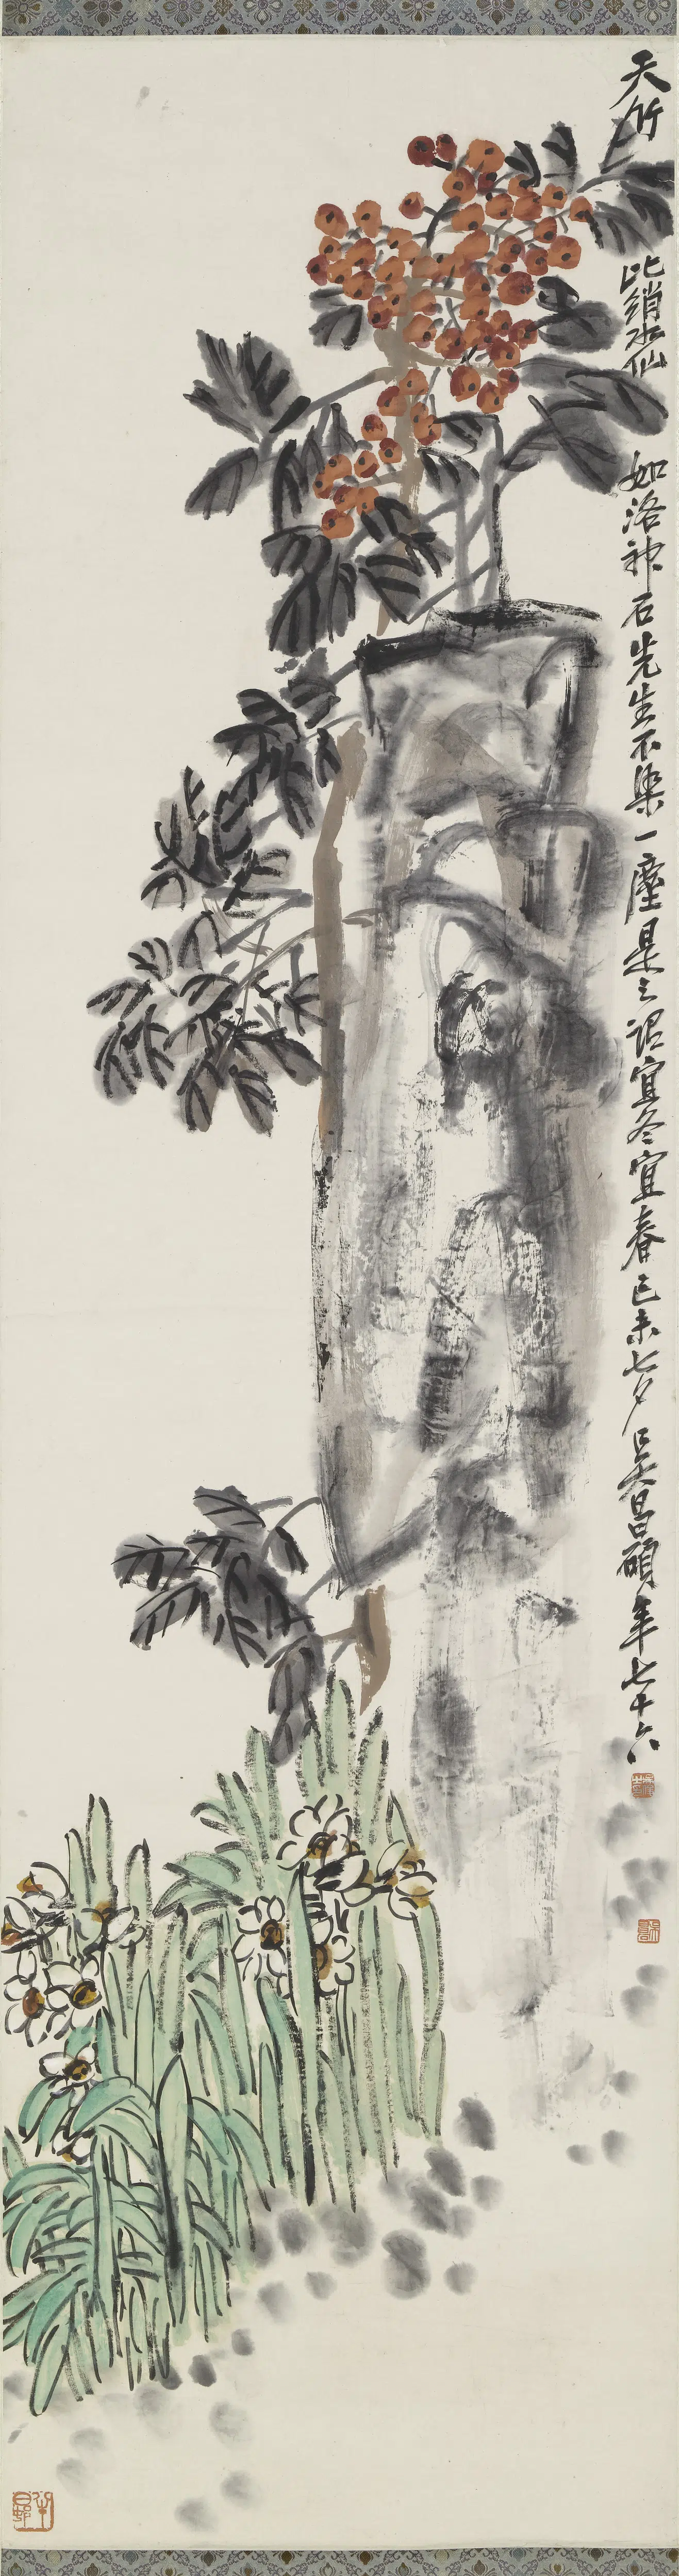 天竹 比絹水仙 如洛神石先生不染一塵是之謂宜冬宜春己未七夕吳昌碩年七十六